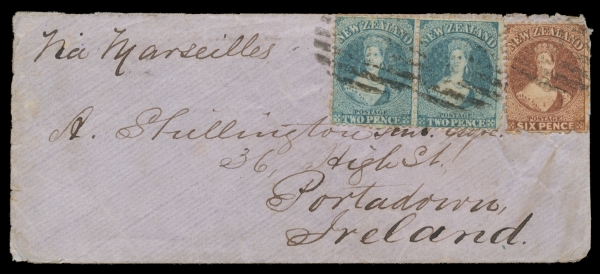 Via Marseilles
NEW ZEALAND
POSTAGE
TWO PENCE
NEW ZEALAND
POSTAGE
TWO PENCE
NEW ZEALAND
POSTAGE
SIX PENCE
A. Shillington
36, High St.
Portadown,
Ireland.